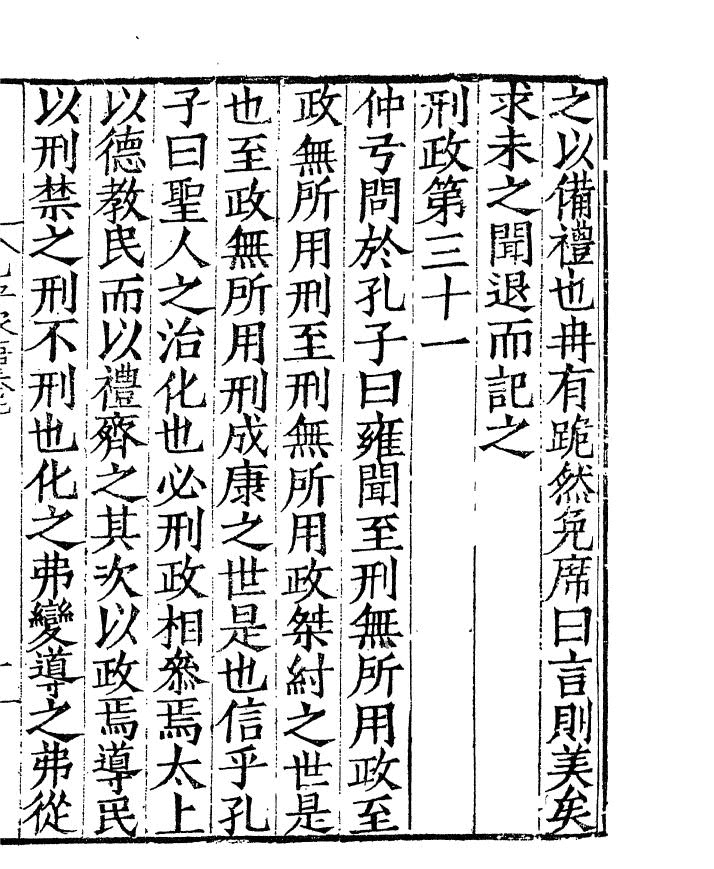 之以備禮也冉有跪然免席曰言則美矣
求未之聞退而記之
刑政第三十一
仲弓問於孔子曰雍聞至刑無所用政至
政無所用刑至刑無所用政桀紂之世是
也至政無所用刑成康之世是也信乎孔
子曰聖人之治化也必刑政相叅焉太上
以德教民而以禮齊之其次以政焉導民
以刑禁之刑不刑也化之弗變導之弗從